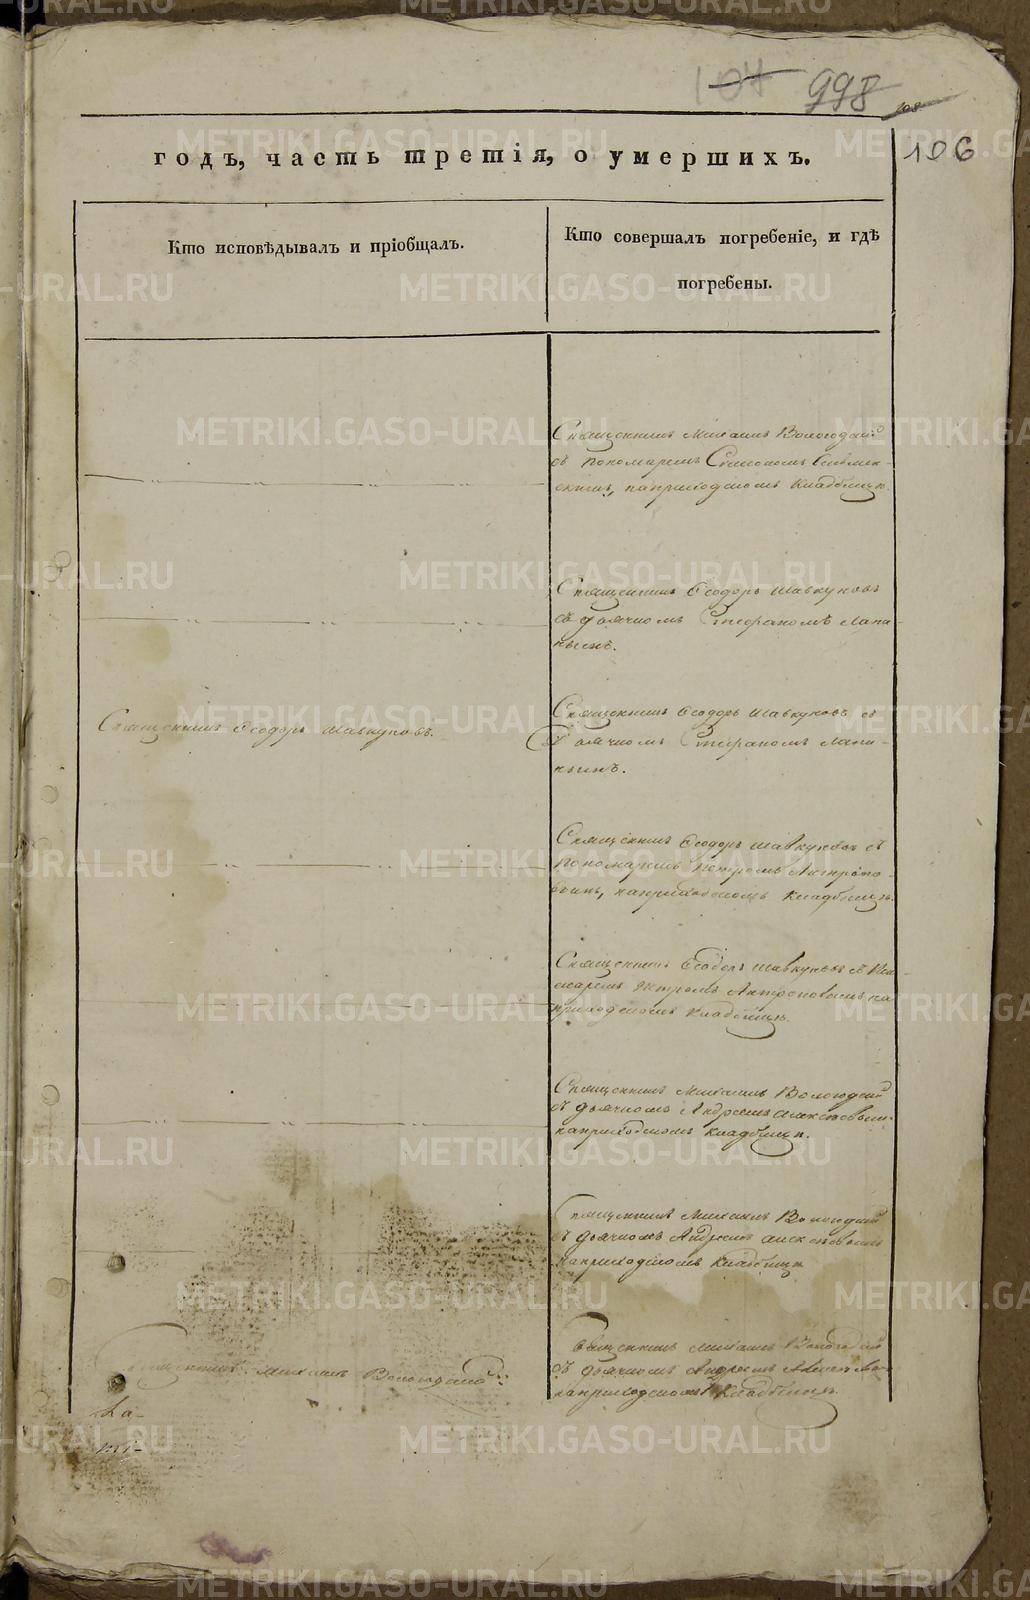 107 998 108
106
годъ, часть третія, о умершихъ.
Кто исповѣдывалъ и пріобщалъ.
Кто совершалъ погребеніе, и гдѣ
погребены.
Священникъ Михаилъ Вологодскій
съ пономаремъ Симеономъ
на приходскомъ кладбищѣ.
Священникъ Ѳеодоръ Шавкуновъ
съ дьячкомъ Стефаномъ Лапи-
нымъ.
Священникъ Ѳеодоръ Шавкуновъ.
Священникъ Ѳеодоръ Шавкуновъ съ
дьячкомъ Стефаномъ Лапи-
нымъ.
Священникъ Ѳеодоръ Шавкуновъ съ
пономаремъ Петромъ Антропо-
вымъ, на приходскомъ кладбищѣ.
Священникъ Ѳеодоръ Шавкуновъ съ Поно-
маремъ Петромъ Антроповымъ на
приходскомъ кладбищѣ.
Священникъ Михаилъ Вологодскій
съ дьячкомъ Андреемъ
на приходскомъ кладбищѣ.
Священникъ Михаилъ Вологодскій
съ дьячкомъ Андреемъ
на приходскомъ кладбищѣ
Священникъ Михаилъ Вологодскій
Священникъ Михаилъ Вологодскій
съ дьячкомъ Андреемъ
на приходскомъ кладбищѣ.
METRIKI.GASO-URAL.RU